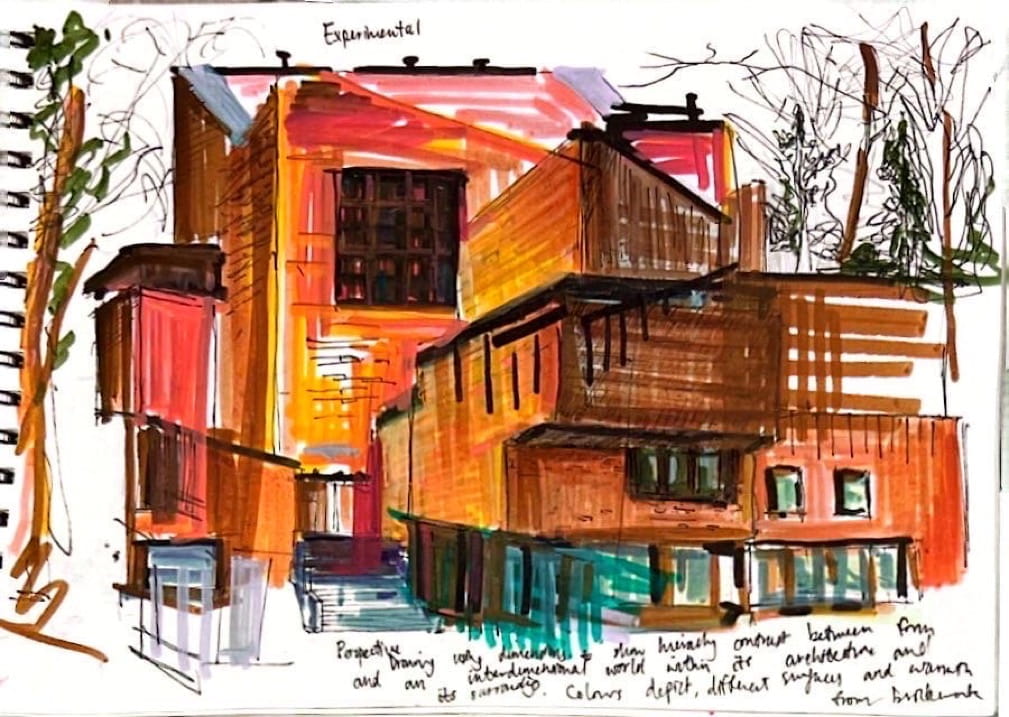 Experimental
Perspective Drawing dimensions to show contrast between form
and an interdimensional world within its architecture and
its. Colours depict, different surfaces and warmth
from Brickwork